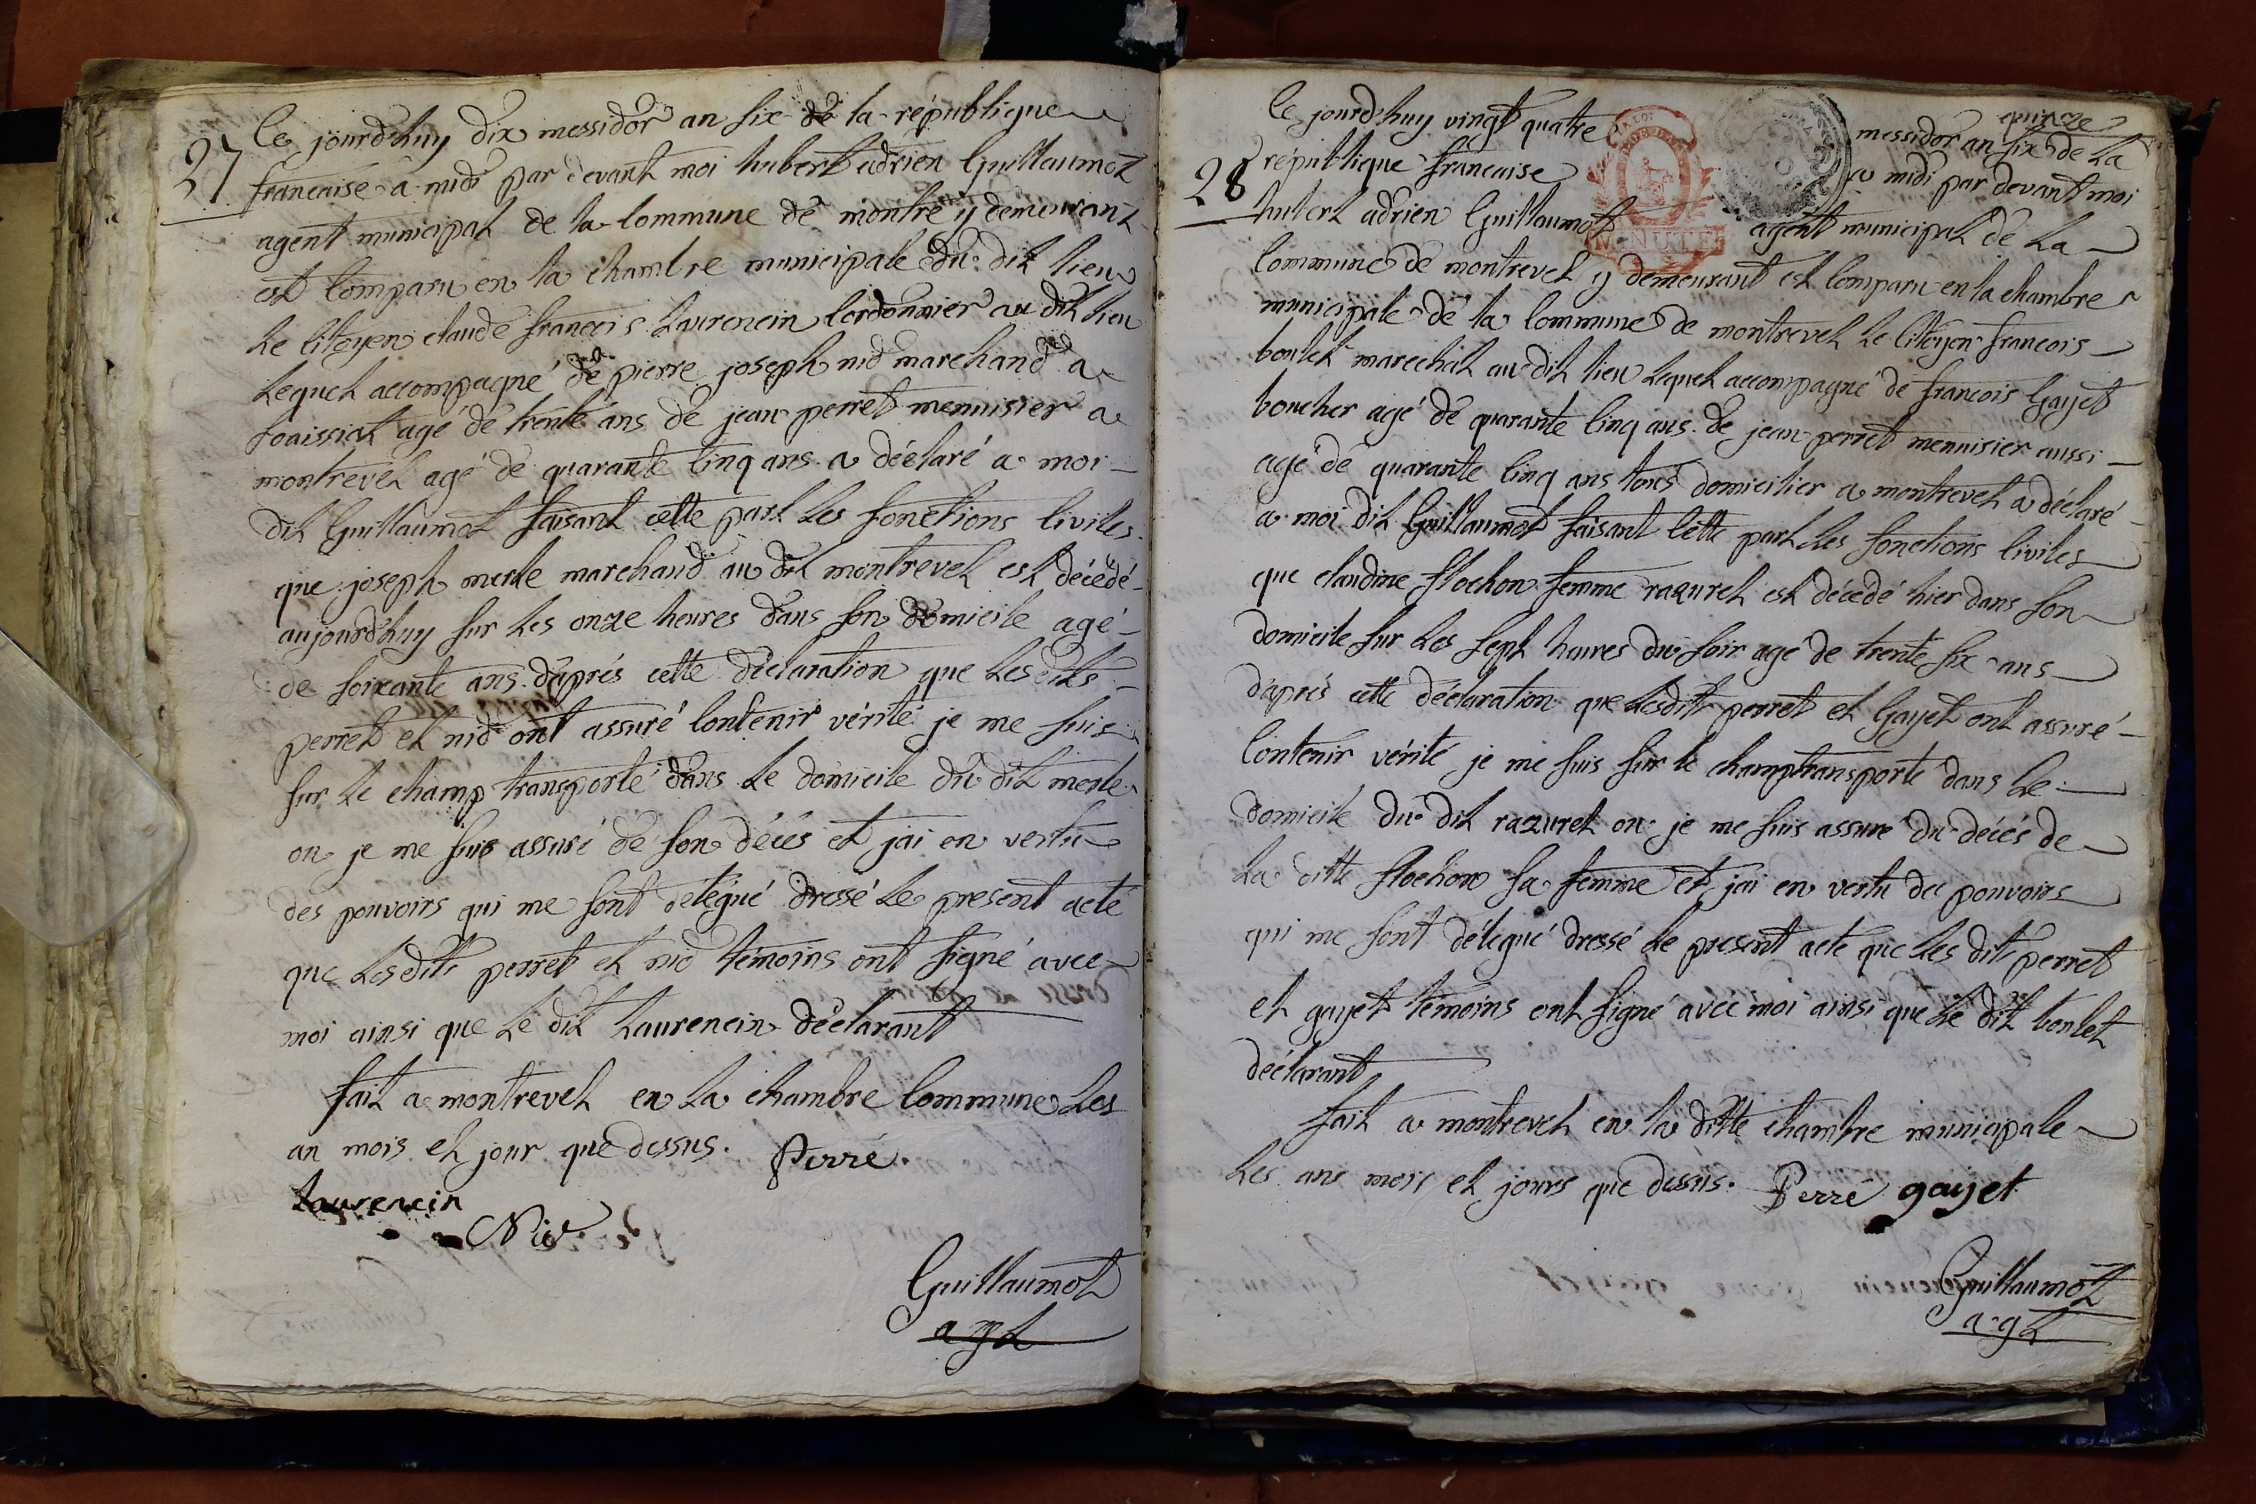 27
Ce jourd'huy dix messidor an six de la république
francaise a midi par devant moi hubert adrien Guillaumot
agent municipal de la Commune de montre y demeurant
est Comparu en la chambre municipale du dit lieu
Le Citoyen claude francois Laurencin Cordonnier au dit lieu
Lequel accompagné de pierre joseph nid marchand a
foaissiat agé de trente ans de jean perret menuisier a
montrevel agé de quarante Cinq ans a déclaré a moi
dit Guillaumot faisant cette part Les fonctions Civiles
que joseph merle marchand au dit montrevel est décédé
aujourd'huy sur Les onze heures dans son domicile agé
de soixante ans. d'après cette déclaration que Lesdits
perret et nid ont assuré Contenir vérité je me suis
sur Le champ transporté dans Le domicile du dit merle
ou je me suis assuré de son décés et jai en vertu
des pouvoirs qui me sont délégué dressé Le present acte
que Lesdits perret et nid témoins ont signé avec
moi ainsi que Le dit Laurencin déclarant
fait a montrevel en La chambre Commune Les
an mois et jour que dessus. Perré
Laurencin
Nid
Guillaumot
agt
28
Ce jourd'huy vingt quatre messidor an six de La
quinze
république francaise a midi par devant moi
hubert adrien Guillaumot agent municipal de La
Commune de montrevel y demeurant est Comparu en la chambre
municipale de la Commune de montrevel Le Citoyen francois
boulet marechal au dit lieu Lequel accompagné de francois Gayet
boucher agé de quarante Cinq ans. de jean perret menuisier aussi
agé de quarante Cinq ans tous domicilier a montrevel a déclaré
a moi dit Guillaumot faisant Cette part Les fonctions Civiles
que claudine flochon femme razurel est décédé hier dans son
domicile sur Les sept heures du soir agé de trente six ans
d'après cette déclaration que Lesdits perret et Gayet ont assuré
Contenir vérité je me suis sur le champ transporté dans Le
domicile du dit razurel ou je me suis assuré du décés de
La ditte flochon sa femme et jai en vertu des pouvoirs
qui me sont délégué dressé Le present acte que Les dits perret
et gayet témoins ont signé avec moi ainsi que Le dit boulet
déclarant
fait a montrevel en la ditte chambre municipale
Les ans mois et jours que dessus. Perré gayet
Guillaumot
a.gt